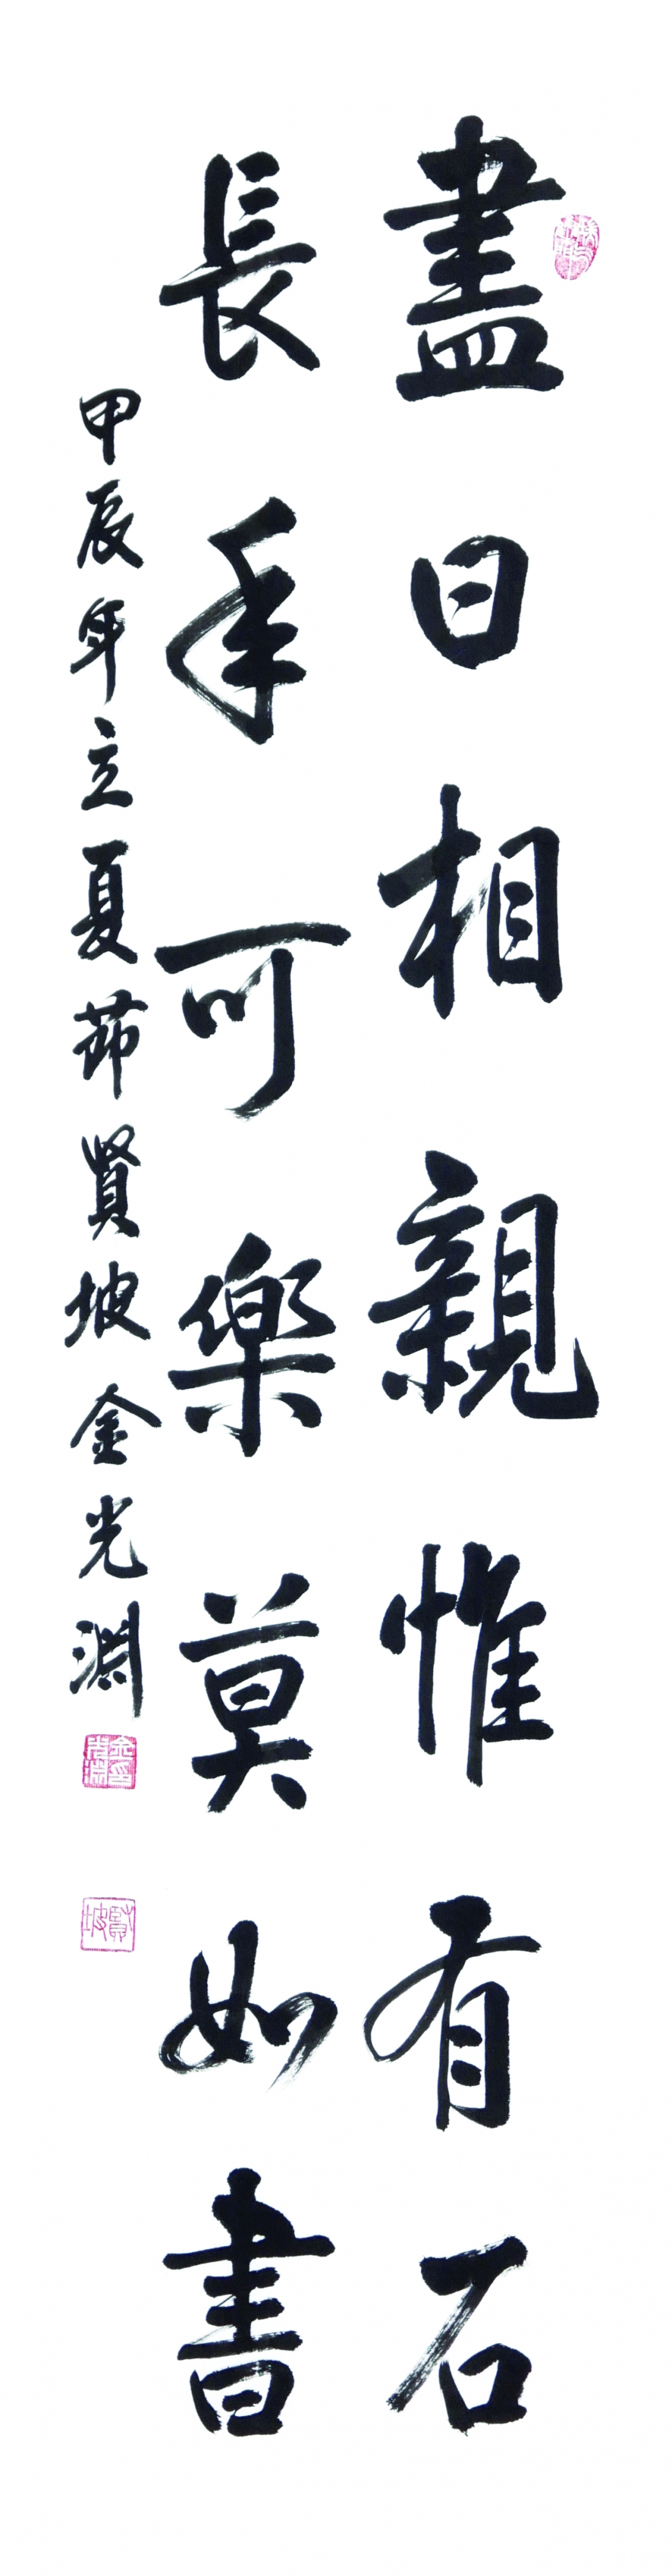 盡日相親惟有石
長年可樂莫如書
甲辰年立夏節賢坡金光淵
金光淵印
賢坡